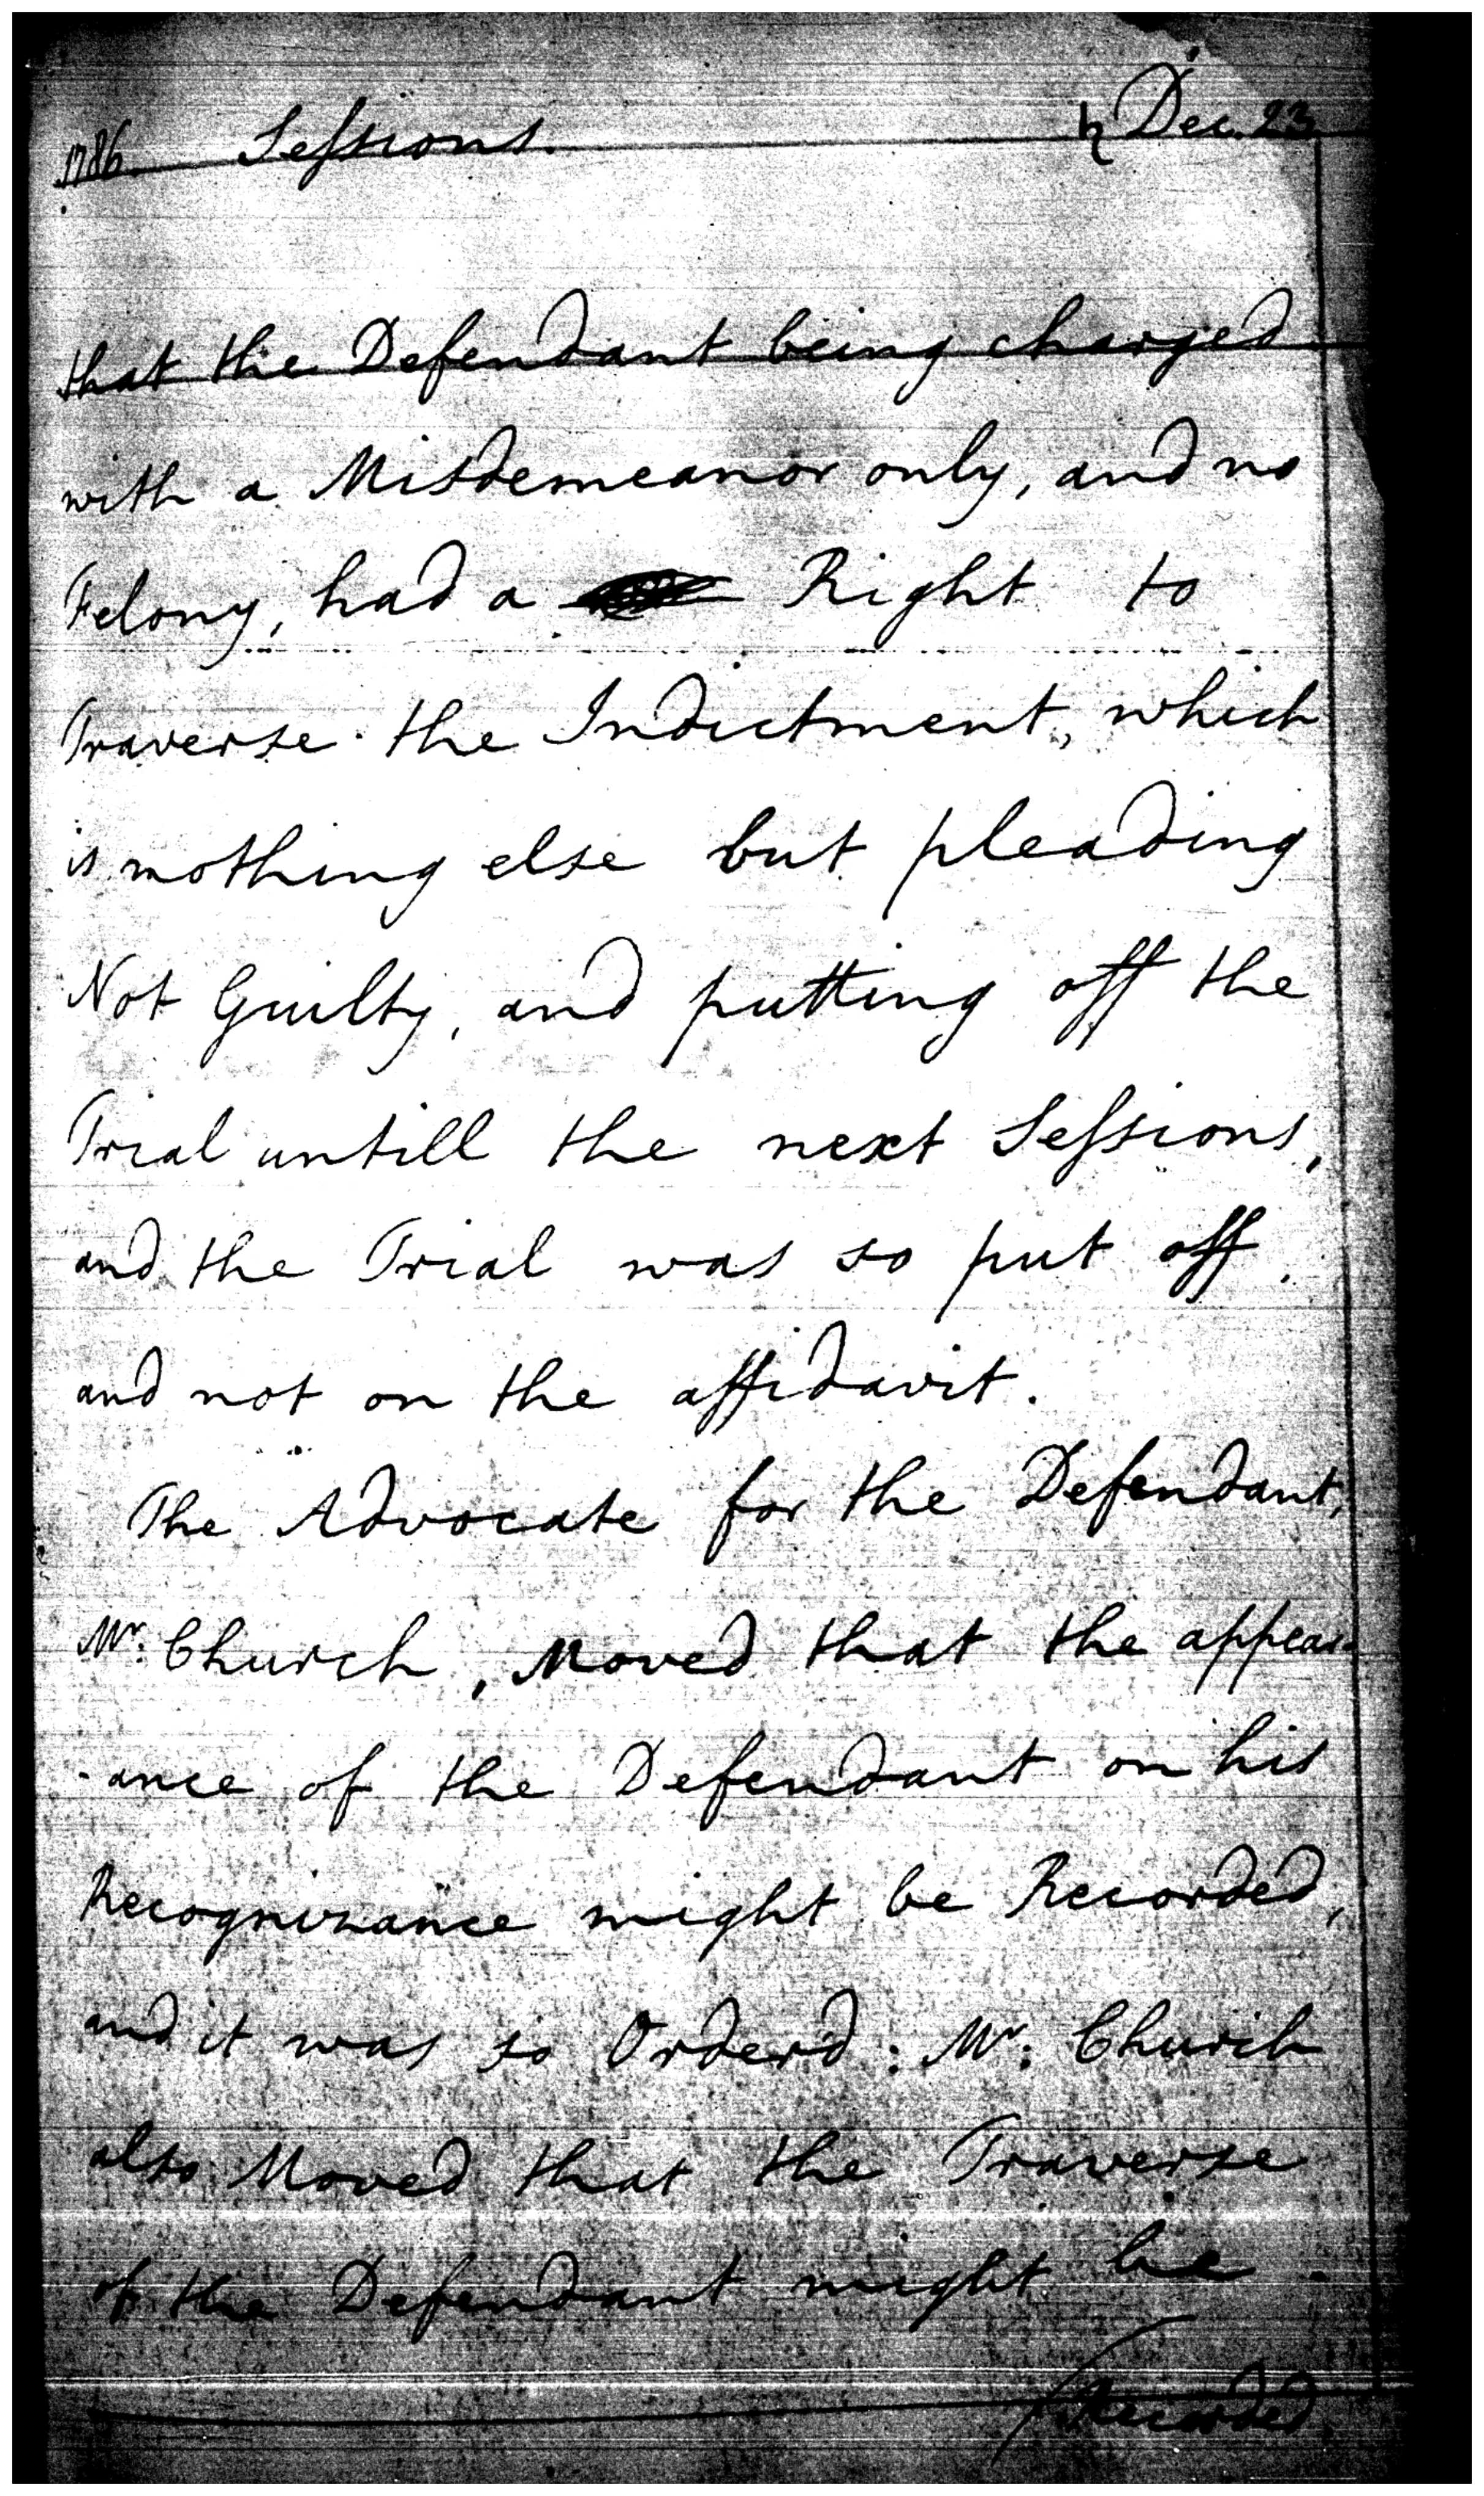 1786. Sessions. ♄ Dec. 23.
that the Defendant being charged
with a Misdemeanor only, and no
Felony, had a Right to
Traverse the Indictment, which
is nothing else but pleading
Not Guilty, and putting off the
Trial untill the next Sessions,
and the Trial was so put off,
and not on the affidavit.
The Advocate for the Defendant,
Mr. Church, Moved that the appear-
-ance of the Defendant on his
Recognizance might be Recorded,
and it was so Orderd: Mr: Church
also Moved that the Traverse
of the Defendant might be
Recorded